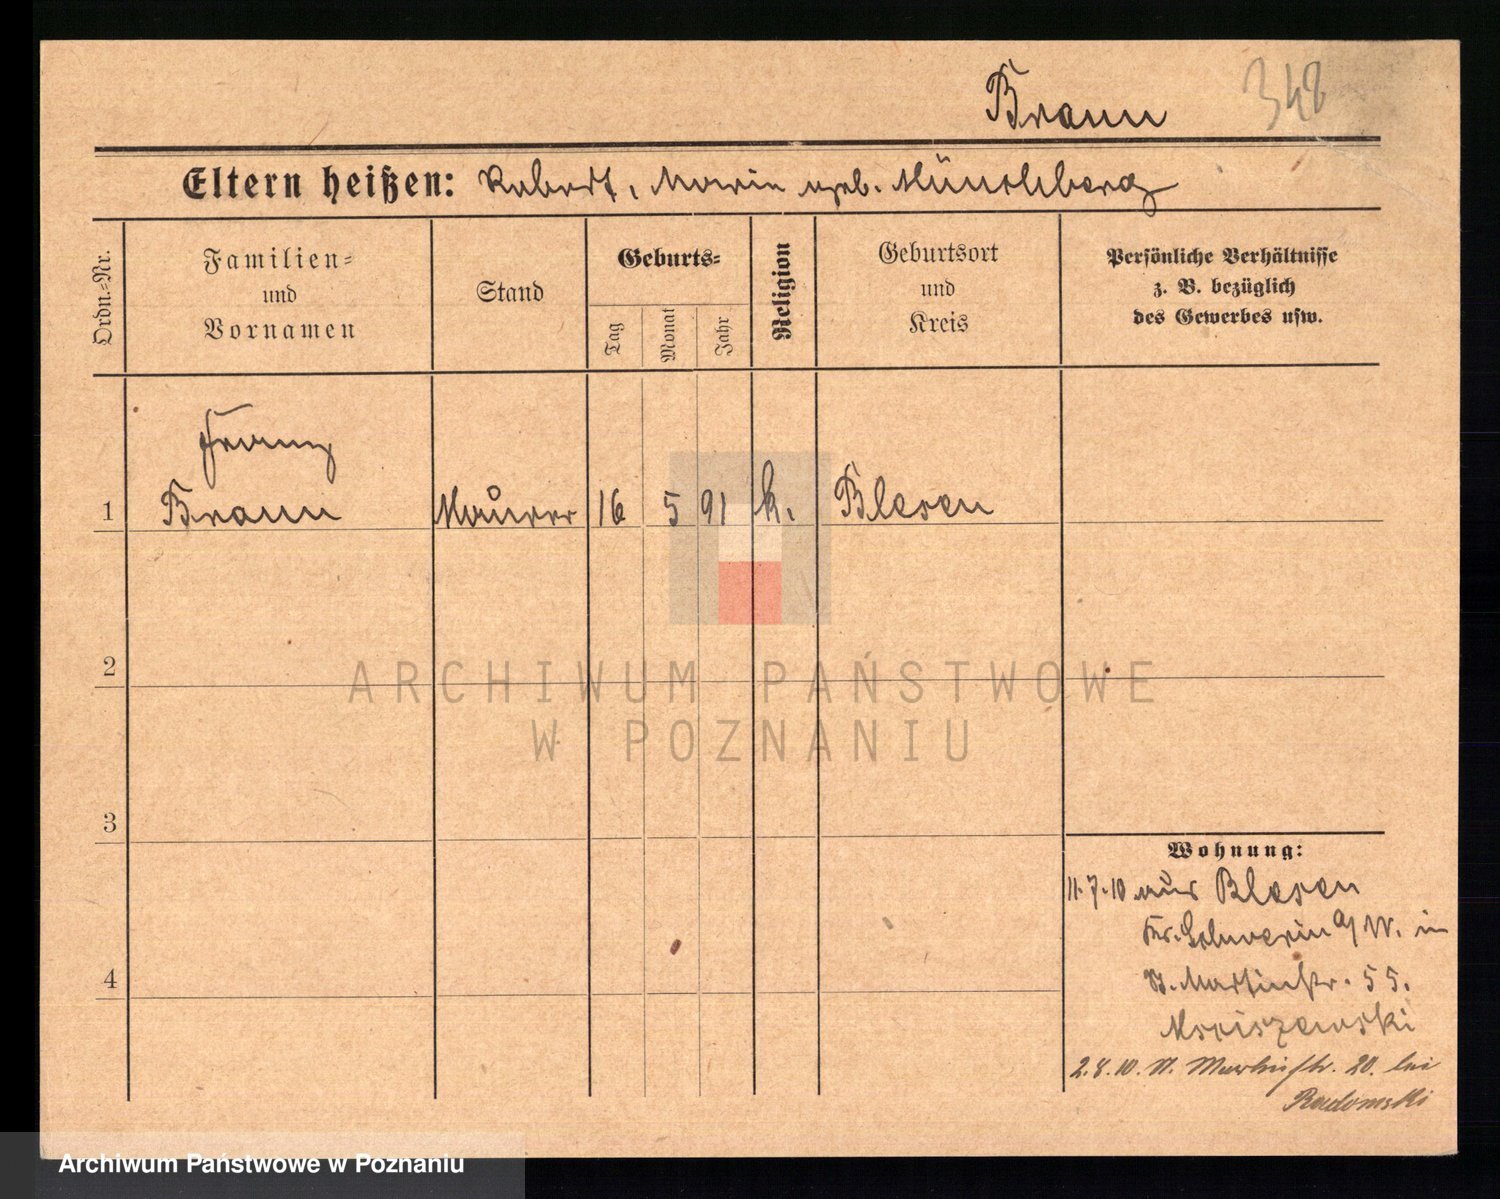 Braun
348
Eltern heißen: Robert, Marie geb. Münchberg
Ordn.=Nr.
Familien=
und
Vornamen
Stand
Geburts=
Tag
Monat
Jahr
Religion
Geburtsort
und
Kreis
Persönliche Verhältnisse
z. B. bezüglich
des Gewerbes usw.
Franz
1 Braun Maurer 16 5 91 k. Blesen
2
3
4
Wohnung:
11.7.10 aus Blesen
Kr. Schwerin a/W. in
St. Martinstr. 55.
2.8.10. St. Martinstr. 20. bei
Radomski
ARCHIWUM PAŃSTWOWE
W POZNANIU
Archiwum Państwowe w Poznaniu